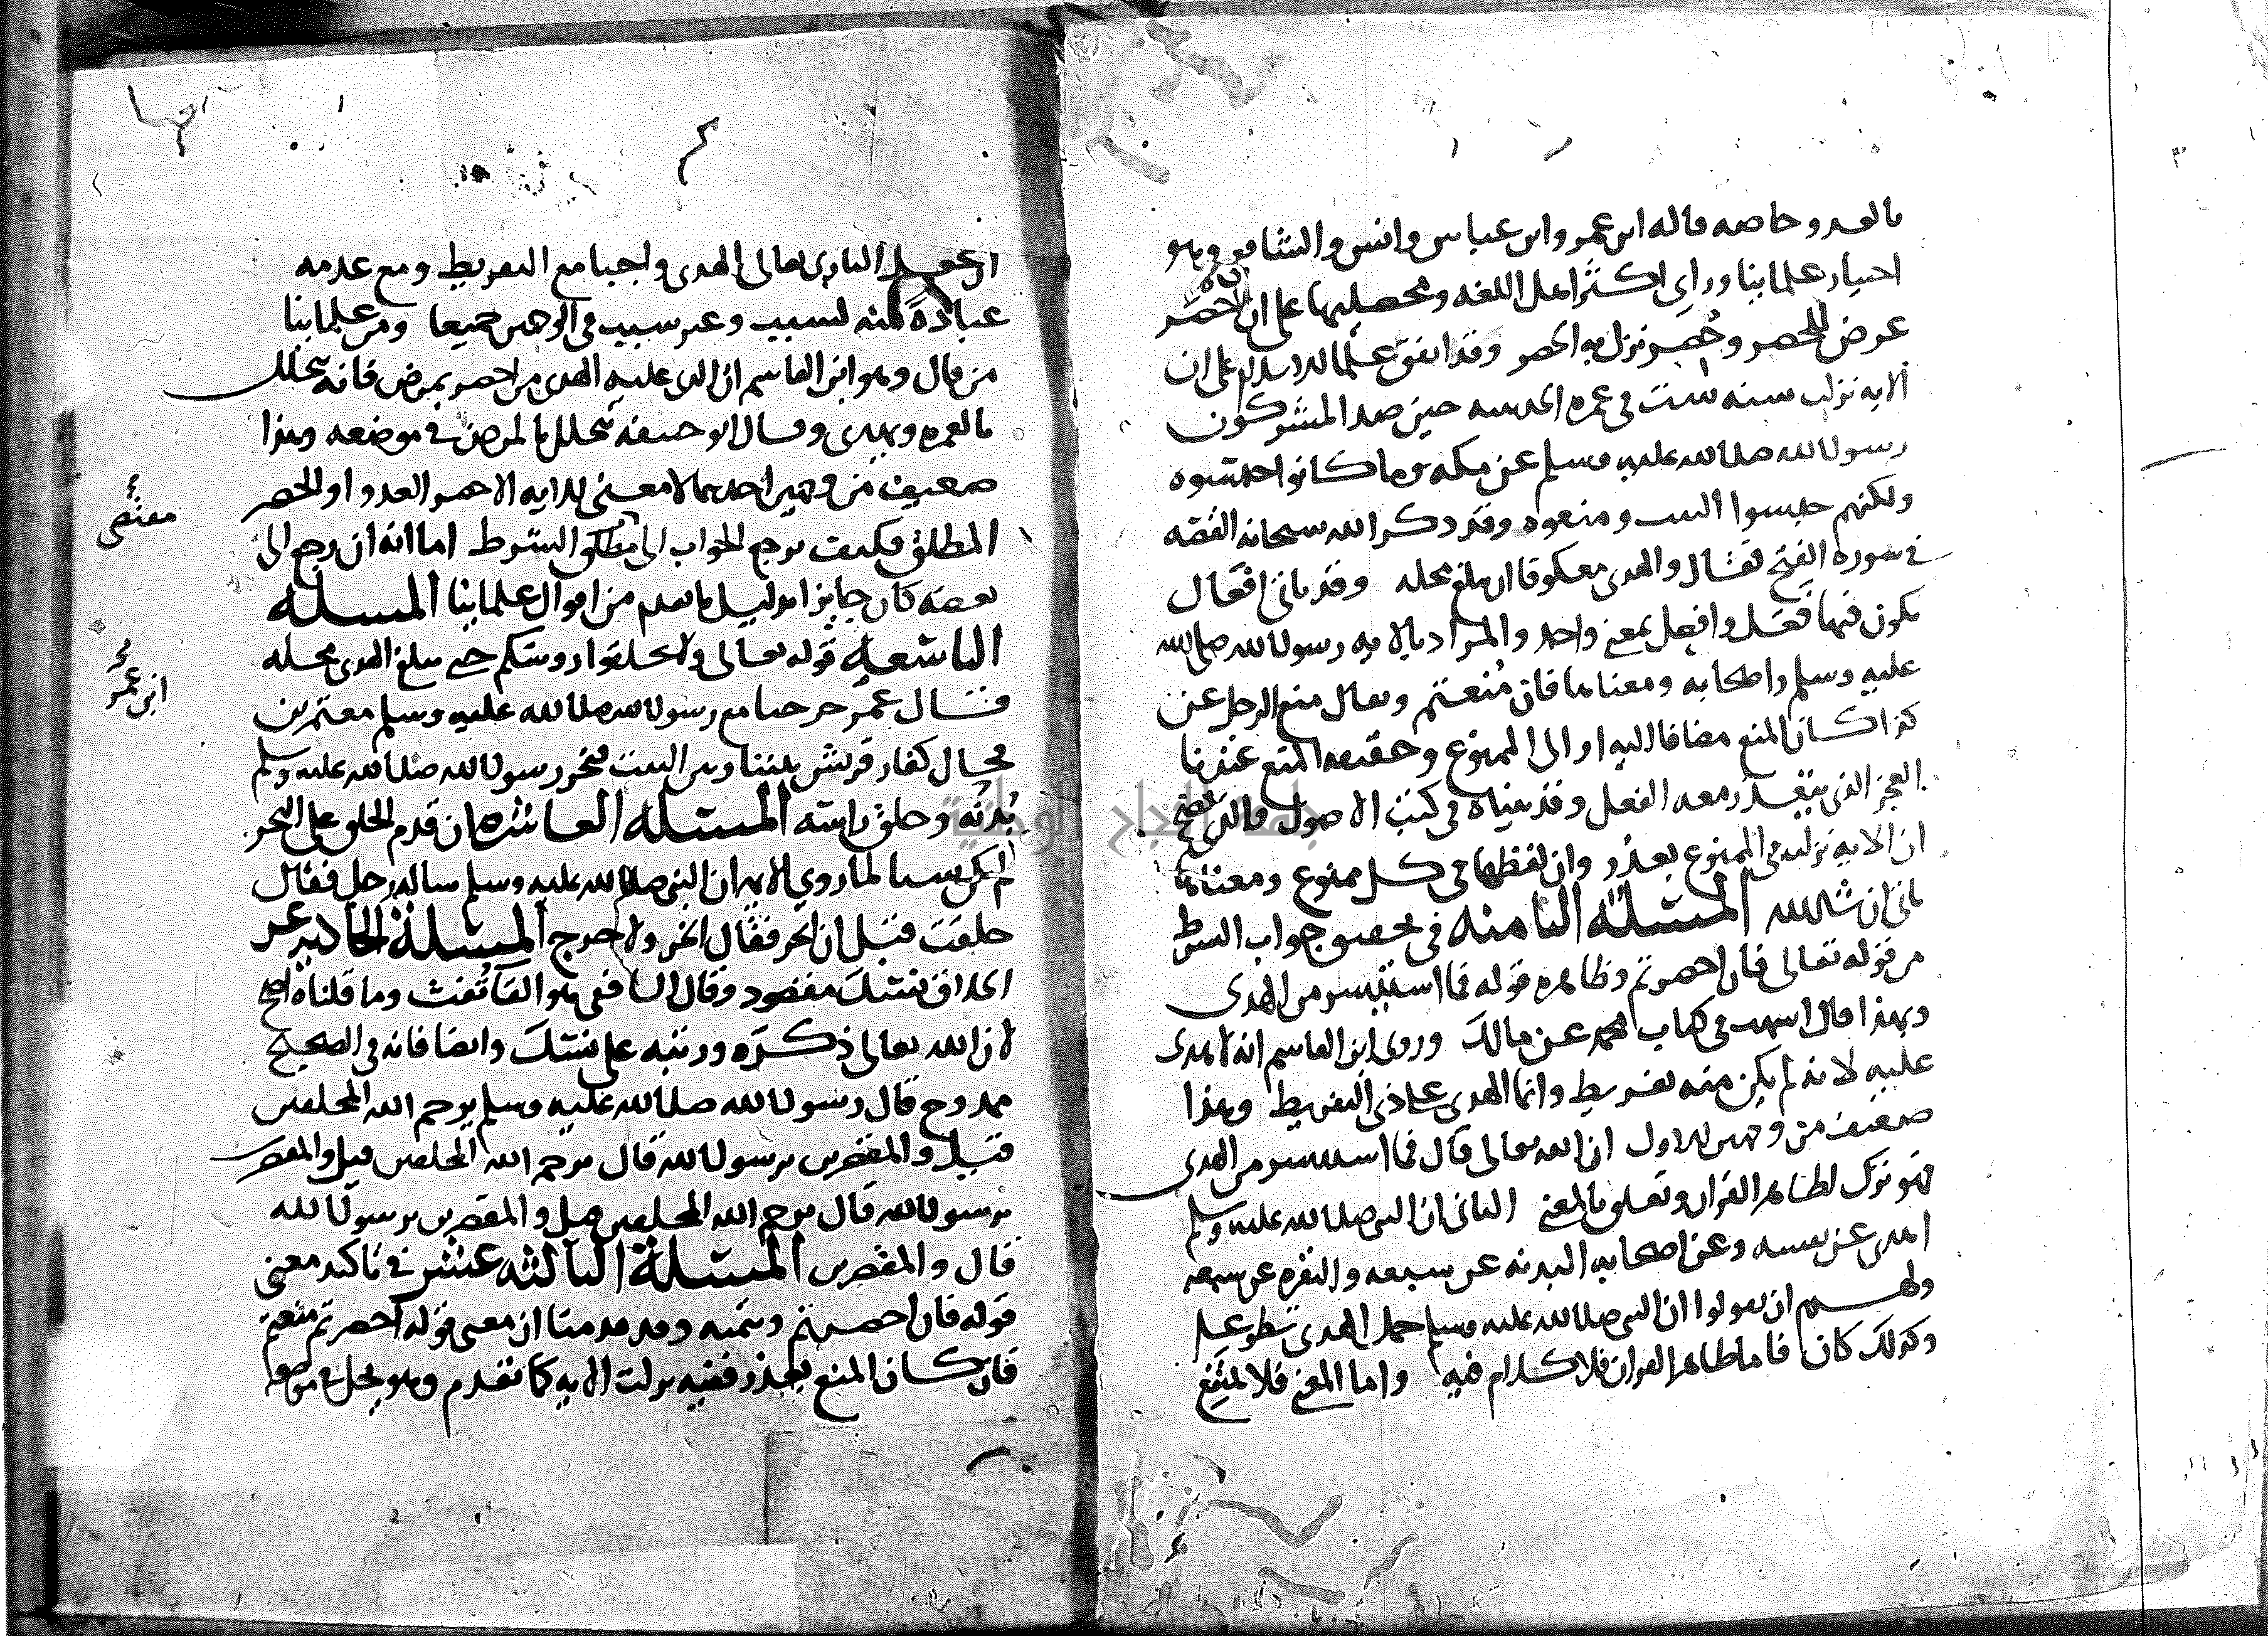 بالعدو خاصه قاله ابن عمر وابن عباس وانس والشافعي وهو
اختيار علمائنا وراي اكثر اهل اللغه ومحصليها على ان احصر
عرض للحصر وحُصر نزل به الحصر وقد اتفق علماء الاسلام على ان
الايه نزلت سنه ست في عمره الحديبيه حين صد المشركون
رسول الله صلى الله عليه وسلم عن مكه وما كانوا احبسوه
ولكنهم حبسوا البيت ومنعوه وقد ذكر الله سبحانه القصه
في سوره الفتح فقال والهدي معكوفا ان يبلغ محله وقد ياتي افعال
يكون فيها فعل وافعل بمعنى واحد والمراد بالايه رسول الله صلى الله
عليه وسلم واصحابه ومعناها فان مُنعتم ويقال منع الرجل عن
كذا كان المنع مضافا اليه او الى الممنوع وحقيقه المنع عندنا
العجز الذي يتعذر معه الفعل وقد بيناه في كتب الاصول والذي يصح
ان الايه نزلت في الممنوع بعذر وان لفظها في كل ممنوع ومعناها
ياتي ان شا الله المسئلة الثامنه في تحقيق جواب الشرط
من قوله تعالى فان احصرتم وظاهره قوله فما استيسر من الهدي
وبهذا قال اشهب في كتاب محمد عن مالك وروى ابن القاسم انه لا هدي
عليه لانه لم يكن منه تفريط وانما الهدي على ذي التفريط وهذا
ضعيف من وجهين الاول ان الله تعالى قال فما استيسر من الهدي
فهو ترك لظاهر القران وتعلق بالمعنى الثاني ان النبي صلى الله عليه وسلم
اهدى عن نفسه وعن اصحابه البدنه عن سبعه والبقره عن سبعه
ولهم ان يقولوا ان النبي صلى الله عليه وسلم حمل الهدي تطوعا
وكذلك كان فاما ظاهر القران فلا كلام فيه واما المعنى فلا يمتنع
ان يجعل الباري تعالى الهدي واجبا مع التفريط ومع عدمه
عبادةً منه لسبب وغير سبب في الوجهين جميعا ومن علمائنا
من قال وهو ابن القاسم ان الذي عليه الهدي من احصر بمرض فانه يتحلل
بالعمره ويهدي وقال ابو حنيفه يتحلل بالمرض في موضعه وهذا
ضعيف من وجهين احدهما لا معنى للايه الا حصر العدو او الحصر
المطلق فكيف يرجع الجواب الى مطلق الشرط اما انه ان رجع الى
بعضه كان جايزا بدليل ما تقدم من اقوال علمائنا المسئله
التاسعه قوله تعالى ولا تحلقوا روسكم حتى يبلغ الهدي محله
فقال عمر خرجنا مع رسول الله صلى الله عليه وسلم معتمرين
فحال كفار قريش بيننا وبين البيت فنحر رسول الله صلى الله عليه وسلم
بُدنَه وحلق راسه المسئلة العاشره ان قدم الحلق على النحر
لم يكن مسيا لما روي الايمه ان النبي صلى الله عليه وسلم ساله رجل فقال
حلقت قبل ان انحر فقال انحر ولا حرج المسئلة الحاديه عشر
الحلاق نسك مقصود وقال الشافعي هو القا تفث وما قلناه اصح
لان الله تعالى ذكره ورتبه على نسك وايضا فانه في الصحيح
ممدوح قال رسول الله صلى الله عليه وسلم يرحم الله المحلقين
قيل والمقصرين يرسول الله قال يرحم الله المحلقين قيل والمقصرين
يرسول الله قال يرحم الله المحلقين قيل والمقصرين يرسول الله
قال والمقصرين المسئلة الثالثه عشر في تاكيد معنى
قوله فان احصرتم وتتميه وقد قدمنا ان معنى قوله احصرتم منعتم
فان كان المنع بعذر ففيه نزلت الايه كما تقدم وهو يحل في موضعه
مقتضى
ابن عمر